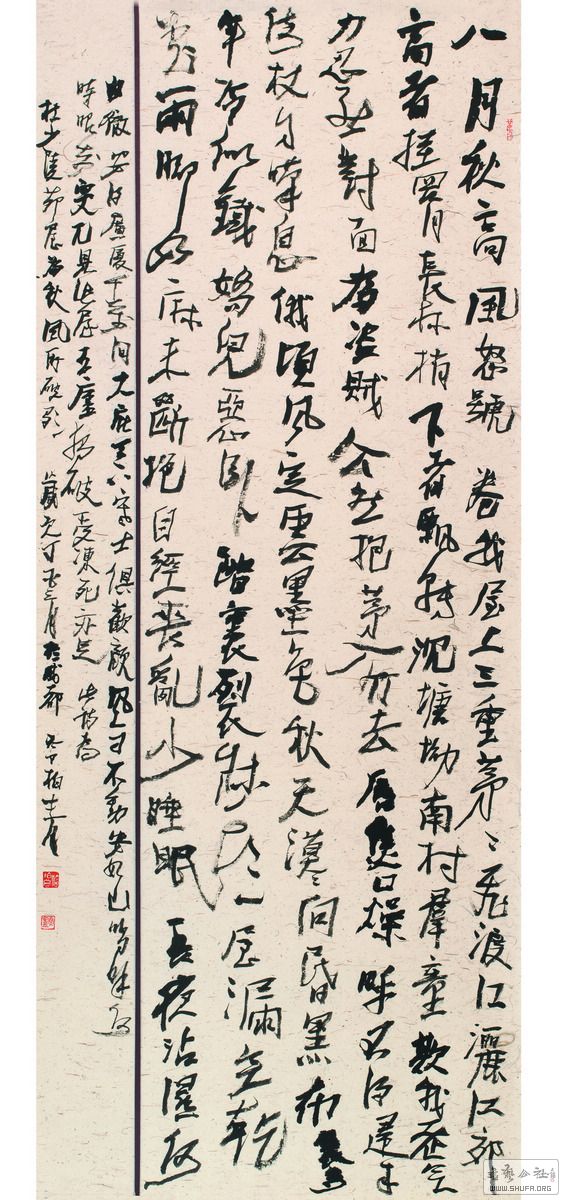 八月秋高風怒號卷我屋上三重茅〻飛渡江灑江郊
高者挂罥長林梢下者飄轉沉塘坳南村羣童欺我老無
力忍能對面為盜賊公然抱茅入竹去唇焦口燥呼不得歸來
倚杖自嘆息俄頃風定雲墨色秋天漠〻向昏黑布衾多
年冷似鐵嬌兒惡臥踏裏裂床頭屋漏無乾
處雨脚如麻未斷絕自經喪亂少睡眠長夜沾濕何
由徹安得廣廈千萬間大庇天下寒士俱歡顏風雨不動安如山嗚呼何
時眼前突兀見此屋吾廬獨破受凍死亦足
杜少陵茅屋為秋風所破歌 三月於成都
WWW.SHUFA.ORG